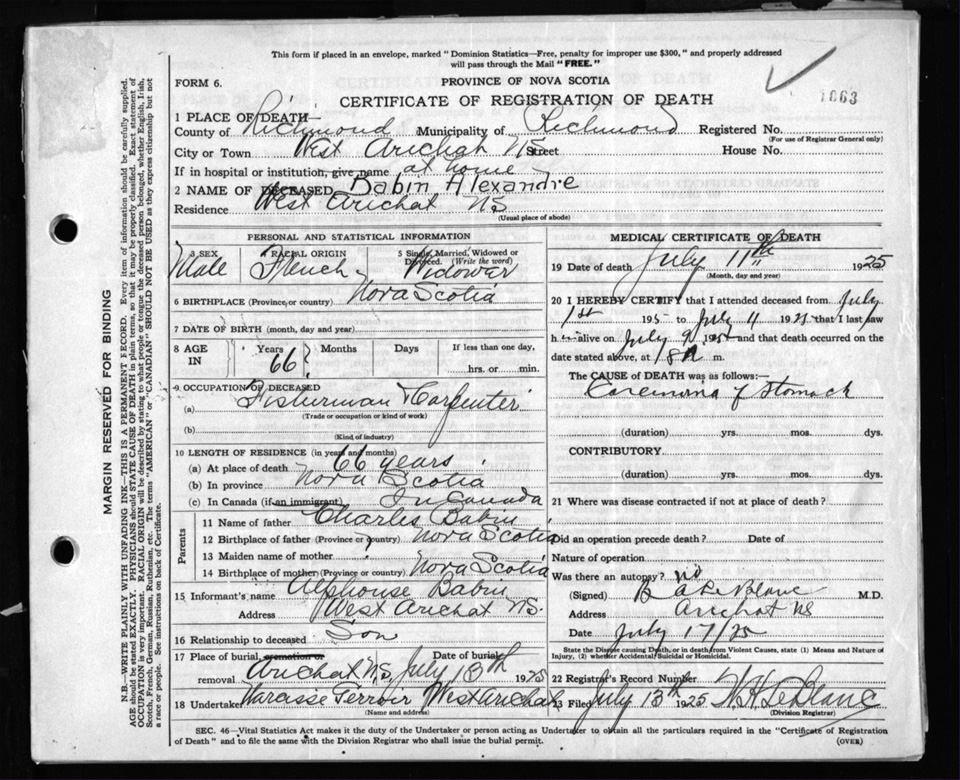 This form if placed in an envelope, marked "Dominion Statistics—Free, penalty for improper use $300," and properly addressed
will pass through the Mail "FREE."
FORM 6.
PROVINCE OF NOVA SCOTIA
CERTIFICATE OF REGISTRATION OF DEATH
1863
1 PLACE OF DEATH—
County of Richmond Municipality of Richmond Registered No.
(For use of Registrar General only)
City or Town West Arichat NS Street House No.
If in hospital or institution, give name at home
2 NAME OF DECEASED Babin Alexandre
Residence West Arichat NS
(Usual place of abode)
PERSONAL AND STATISTICAL INFORMATION
3 SEX Male RACIAL ORIGIN French 5 Single, Married, Widowed or Divorced. (Write the word) Widower
6 BIRTHPLACE (Province, or country) Nova Scotia
7 DATE OF BIRTH (month, day and year)
8 AGE IN Years 66 Months Days If less than one day, hrs. or min.
9 OCCUPATION OF DECEASED
(a) Fisherman & Carpenter
(Trade or occupation or kind of work)
(b)
(Kind of industry)
10 LENGTH OF RESIDENCE (in years and months)
(a) At place of death 66 years
(b) In province Nova Scotia
(c) In Canada (if an immigrant) In Canada
Parents
11 Name of father Charles Babin
12 Birthplace of father (Province or country) Nova Scotia
13 Maiden name of mother ?
14 Birthplace of mother (Province or country) Nova Scotia
15 Informant's name Alphonse Babin
Address West Arichat NS.
16 Relationship to deceased Son
17 Place of burial, cremation or removal Arichat NS, Date of burial July 13th 1925
18 Undertaker West Arichat
(Name and address)
MEDICAL CERTIFICATE OF DEATH
19 Date of death July 11th 1925
(Month, day and year)
20 I HEREBY CERTIFY that I attended deceased from July
1st 1925 to July 11 1925 that I last saw
h alive on July 9 1925 and that death occurred on the
date stated above, at m.
The CAUSE of DEATH was as follows:—
Carcinoma of Stomach
(duration) yrs. mos. dys.
CONTRIBUTORY.
(duration) yrs. mos. dys.
21 Where was disease contracted if not at place of death?
Did an operation precede death? Date of
Nature of operation
Was there an autopsy? no
(Signed) B A LeBlanc M.D.
Address Arichat NS
Date July 17/25
State the Disease causing Death, or in death from Violent Causes, state (1) Means and Nature of
Injury, (2) whether Accidental, Suicidal or Homicidal.
22 Registrar's Record Number
23 Filed July 13th 1925 LeBlanc
(Division Registrar)
SEC. 46—Vital Statistics Act makes it the duty of the Undertaker or person acting as Undertaker to obtain all the particulars required in the "Certificate of Registration
of Death" and to file the same with the Division Registrar who shall issue the burial permit.
(OVER)
MARGIN RESERVED FOR BINDING
N.B.—WRITE PLAINLY WITH UNFADING INK—THIS IS A PERMANENT RECORD. Every item of information should be carefully supplied.
AGE should be stated EXACTLY. PHYSICIANS should STATE CAUSE OF DEATH in plain terms, so that it may be properly classified. Exact statement of
OCCUPATION is very important. RACIAL ORIGIN will be described by stating to what people or tongue the deceased person belonged, whether English, Irish,
Scotch, French, German, Russian, Ruthenian, etc. The terms "AMERICAN" or "CANADIAN" SHOULD NOT BE USED as they express citizenship but not
a race or people. See instructions on back of Certificate.